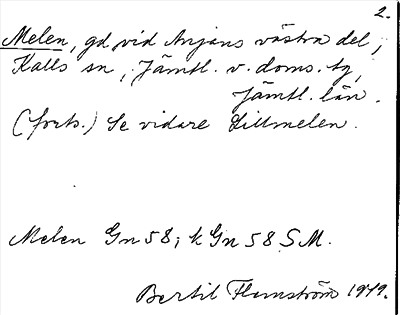 2.
Melen, gd vid Anjans västra del,
Kalls sn, Jämtl. v. doms. tg,
Jämtl. län.
(forts.) Se vidare Lillmelen.
Melen Gn 58; k Gn 58 SM.
Bertil Flemström 1979.